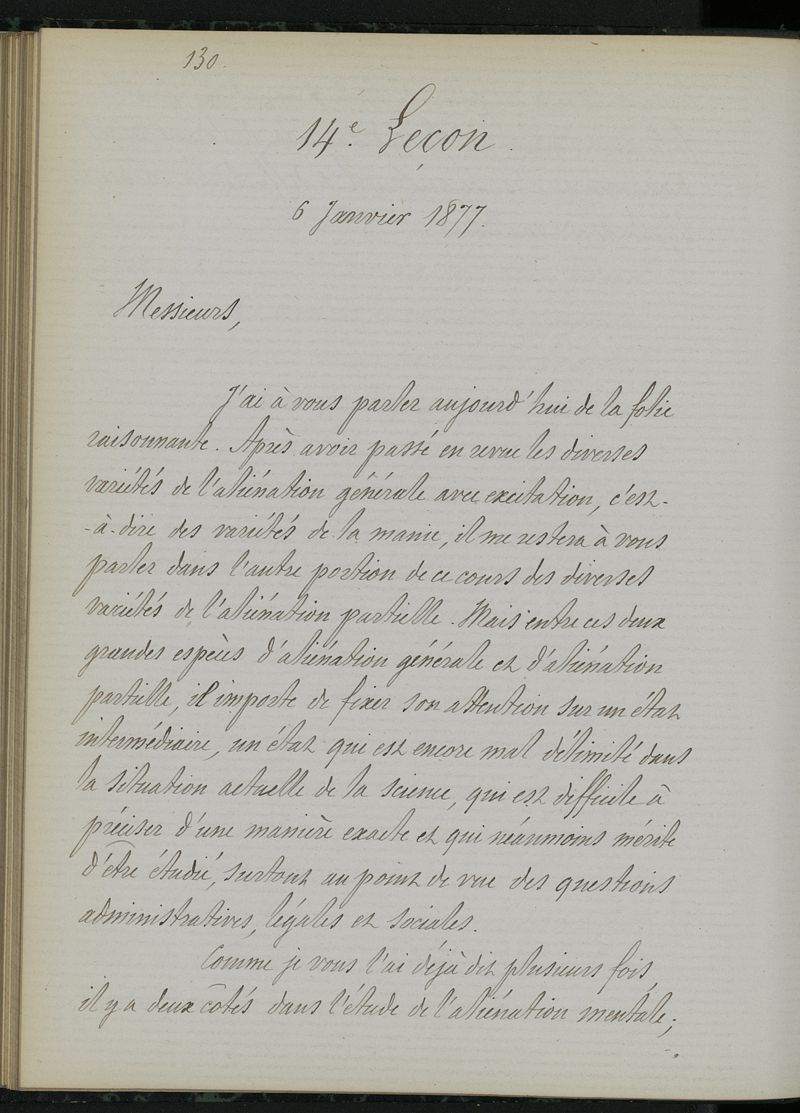 130.
14e. Leçon.
6 Janvier 1877.
Messieurs,
J'ai à vous parler aujourd'hui de la folie
raisonnante. Après avoir passé en revue les diverses
variétés de l'aliénation générale avec excitation, c'est-
-à-dire des variétés de la manie, il me restera à vous
parler dans l'autre portion de ce cours des diverses
variétés de l'aliénation partielle. Mais entre ces deux
grandes espèces d'aliénation générale et d'aliénation
partielle, il importe de fixer son attention sur un état
intermédiaire, un état qui est encore mal délimité dans
la situation actuelle de la science, qui est difficile à
préciser d'une manière exacte et qui néanmoins mérite
d'être étudié, surtout au point de vue des questions
administratives, légales et sociales.
Comme je vous l'ai déjà dit plusieurs fois,
il y a deux côtés dans l'étude de l'aliénation mentale;